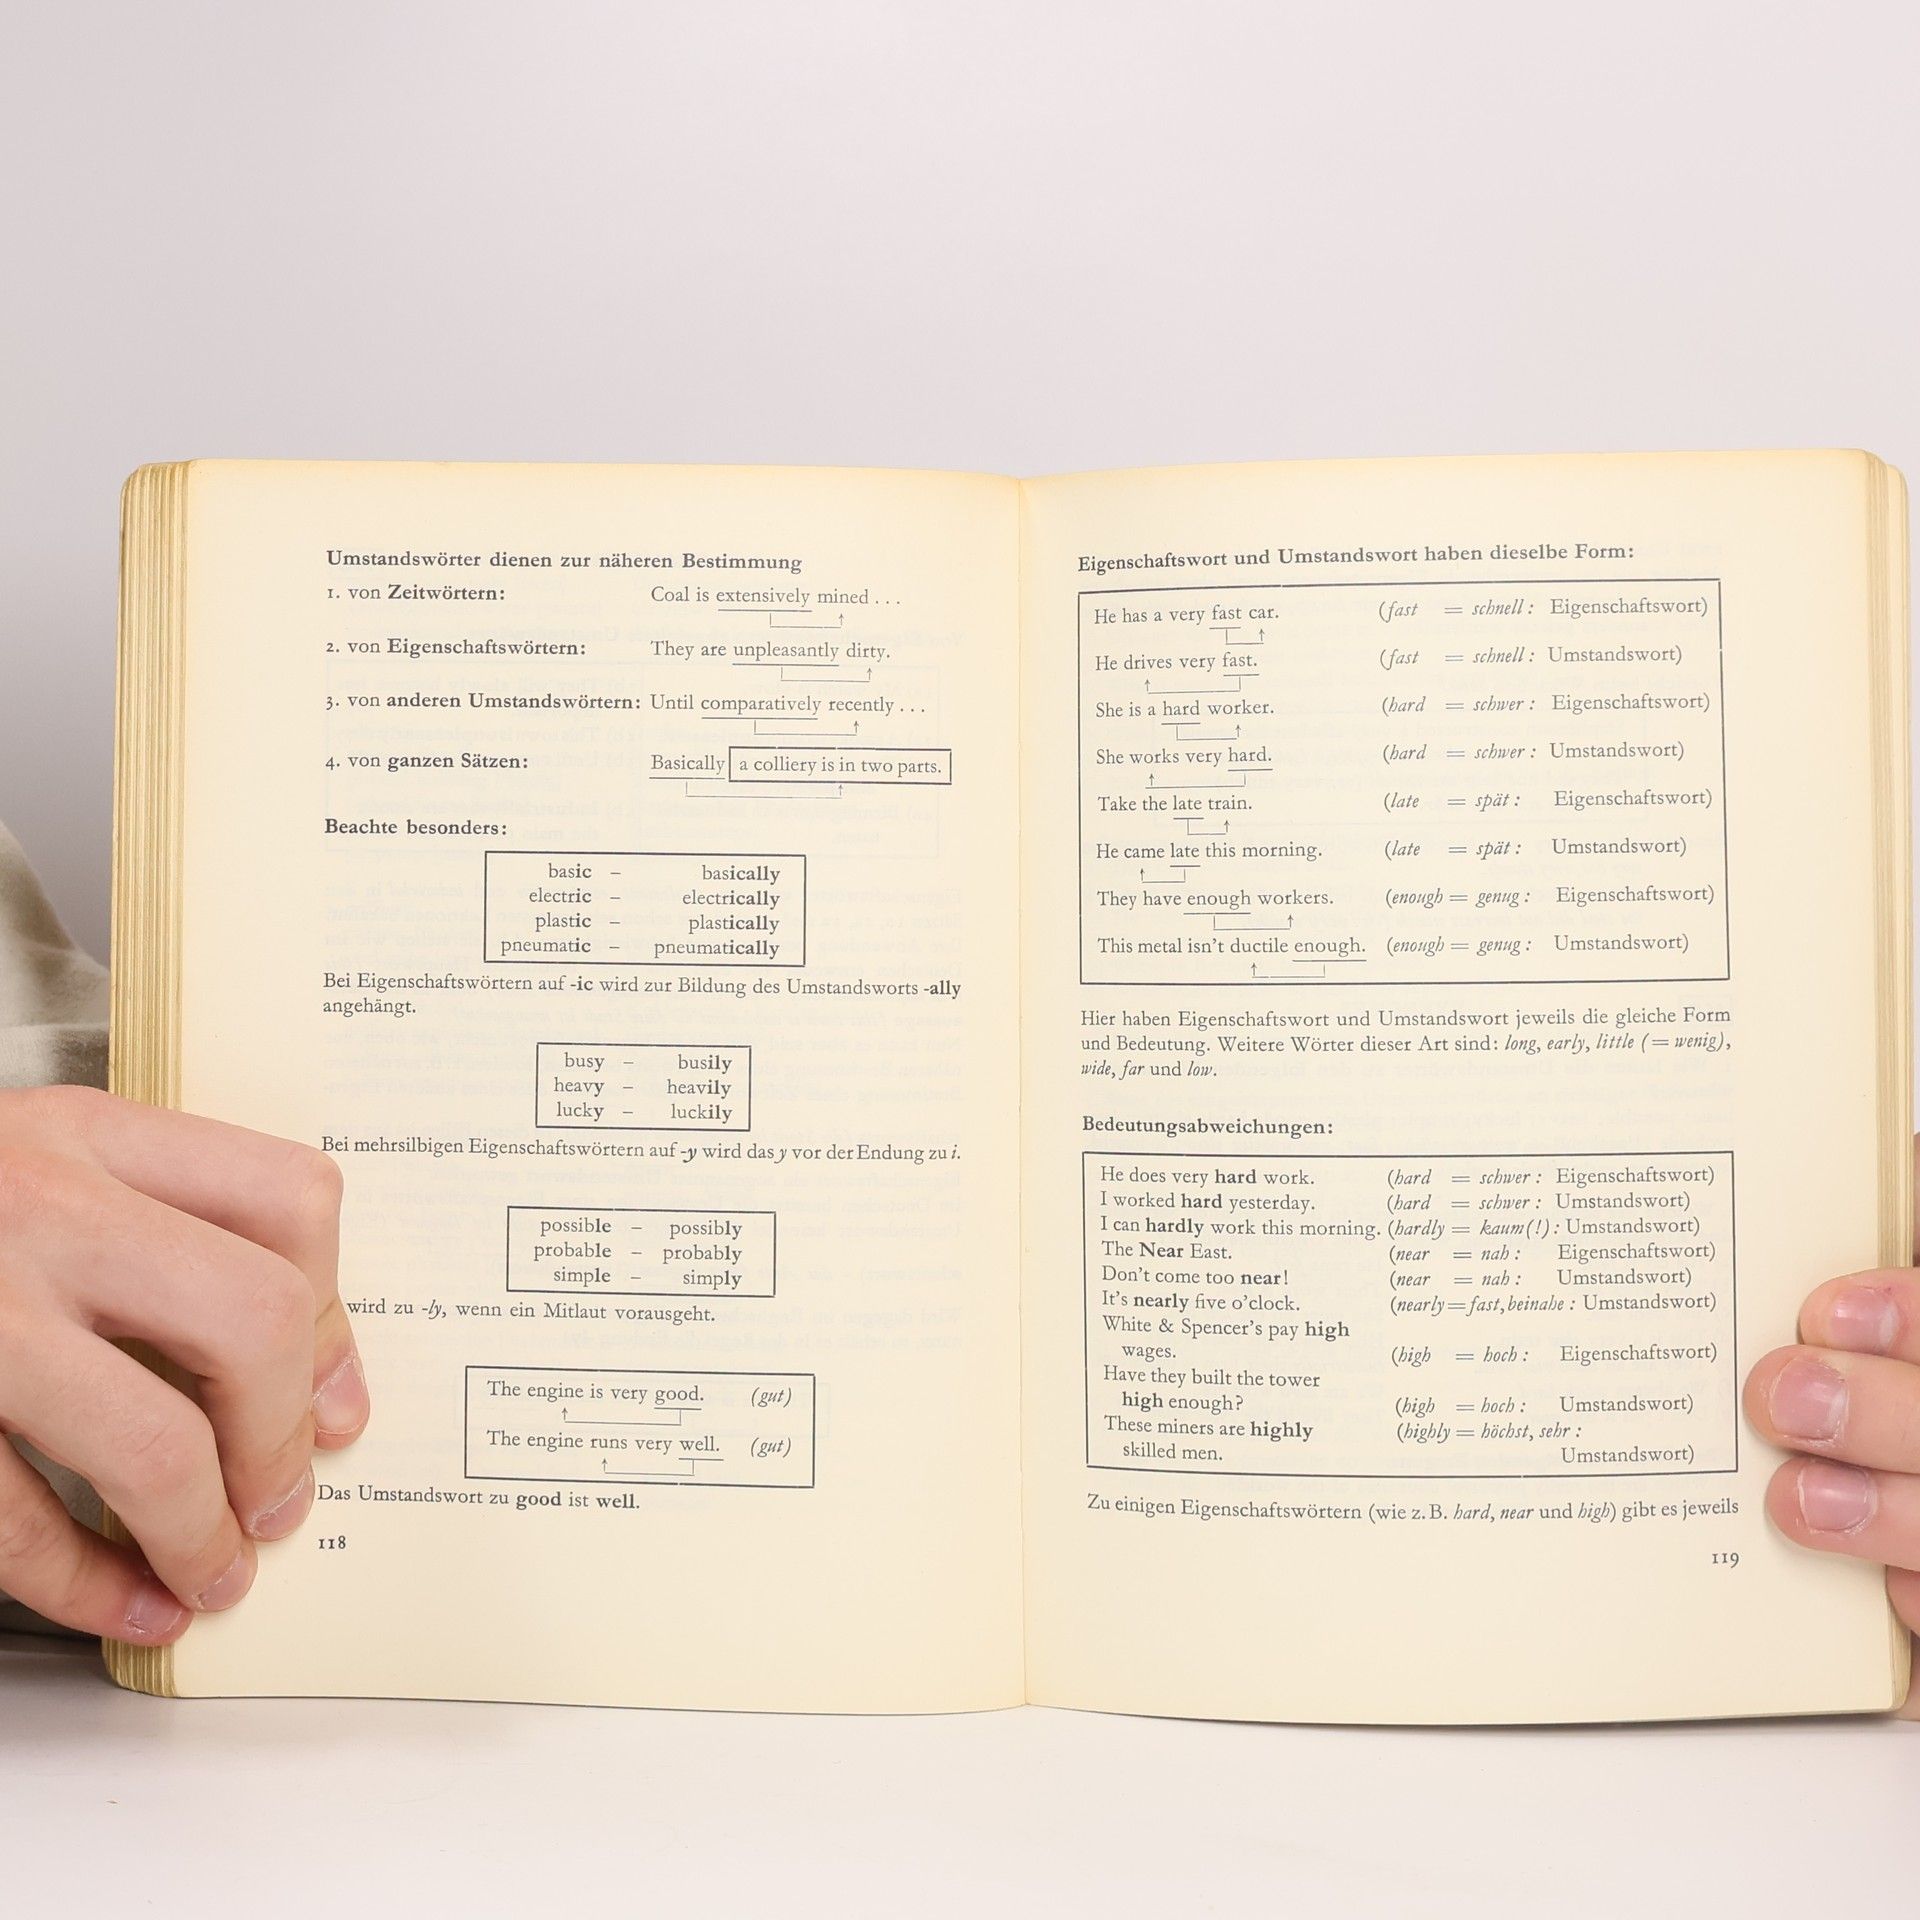 Umstandswörter dienen zur näheren Bestimmung
1. von Zeitwörtern: Coal is extensively mined . . .
2. von Eigenschaftswörtern: They are unpleasantly dirty.
3. von anderen Umstandswörtern: Until comparatively recently . . .
4. von ganzen Sätzen: Basically a colliery is in two parts.
Beachte besonders:
basic – basically
electric – electrically
plastic – plastically
pneumatic – pneumatically
Bei Eigenschaftswörtern auf -ic wird zur Bildung des Umstandsworts -ally
angehängt.
busy – busily
heavy – heavily
lucky – luckily
Bei mehrsilbigen Eigenschaftswörtern auf -y wird das y vor der Endung zu i.
possible – possibly
probable – probably
simple – simply
wird zu -ly, wenn ein Mitlaut vorausgeht.
The engine is very good. (gut)
The engine runs very well. (gut)
Das Umstandswort zu good ist well.
118
Eigenschaftswort und Umstandswort haben dieselbe Form:
He has a very fast car. (fast = schnell: Eigenschaftswort)
He drives very fast. (fast = schnell: Umstandswort)
She is a hard worker. (hard = schwer: Eigenschaftswort)
She works very hard. (hard = schwer: Umstandswort)
Take the late train. (late = spät: Eigenschaftswort)
He came late this morning. (late = spät: Umstandswort)
They have enough workers. (enough = genug: Eigenschaftswort)
This metal isn't ductile enough. (enough = genug: Umstandswort)
Hier haben Eigenschaftswort und Umstandswort jeweils die gleiche Form
und Bedeutung. Weitere Wörter dieser Art sind: long, early, little (= wenig),
wide, far und low.
Bedeutungsabweichungen:
He does very hard work. (hard = schwer: Eigenschaftswort)
I worked hard yesterday. (hard = schwer: Umstandswort)
I can hardly work this morning. (hardly = kaum(!): Umstandswort)
The Near East. (near = nah: Eigenschaftswort)
Don't come too near! (near = nah: Umstandswort)
It's nearly five o'clock. (nearly = fast, beinahe: Umstandswort)
White & Spencer's pay high
wages. (high = hoch: Eigenschaftswort)
Have they built the tower
high enough? (high = hoch: Umstandswort)
These miners are highly (highly = höchst, sehr:
skilled men. Umstandswort)
Zu einigen Eigenschaftswörtern (wie z. B. hard, near und high) gibt es jeweils
119